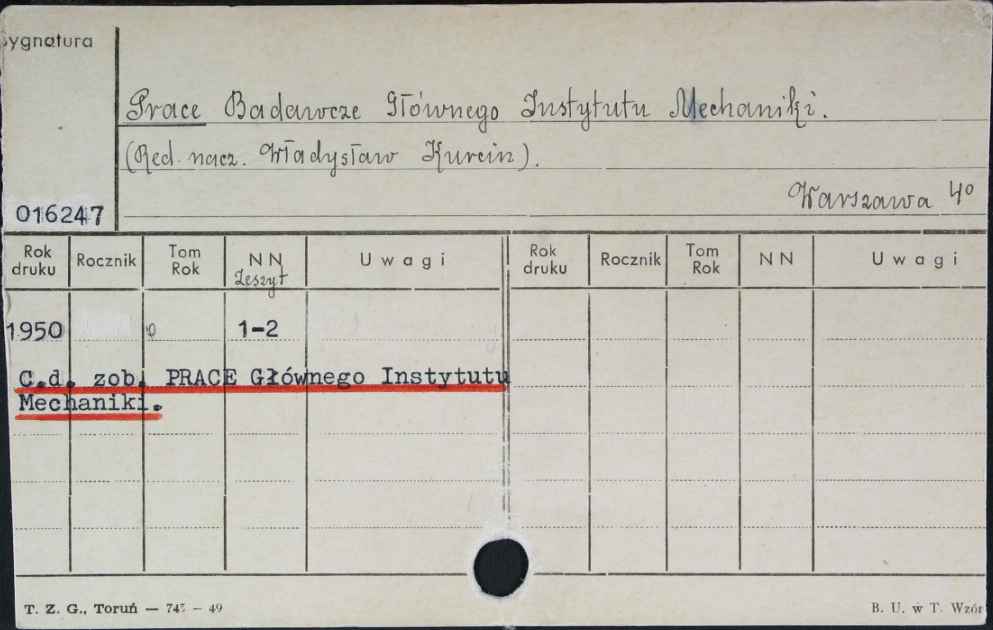 Sygnatura
Prace Badawcze Głównego Instytutu Mechaniki.
(Red. nacz. Władysław Kurcin).
Warszawa 4º
016247
Rok druku Rocznik Tom Rok NN Zeszyt Uwagi Rok druku Rocznik Tom Rok NN Uwagi
1950 1-2
C.d. zob. PRACE Głównego Instytutu
Mechaniki.
T. Z. G., Toruń — 745 — 49 B. U. w T. Wzór